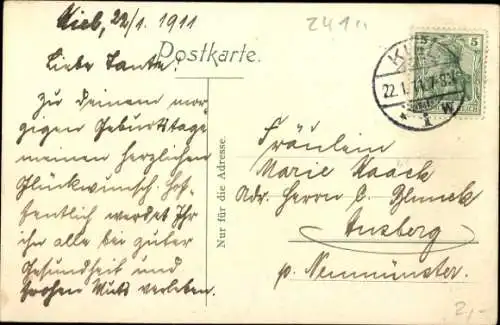 Kiel, 22/1. 1911
Postkarte.
Liebe Tante!
Zu Deinem mor-
gigen Geburtstage
meinen herzlichen
Glückwunsch. Hof-
fentlich werdet Ihr
ihn alle bei guter
Gesundheit und
frohen Muts verleben.
Nur für die Adresse.
5
22.1.
W
Fräulein
Marie Haack
Adr. Herrn C.
p. Neumünster.
2,-